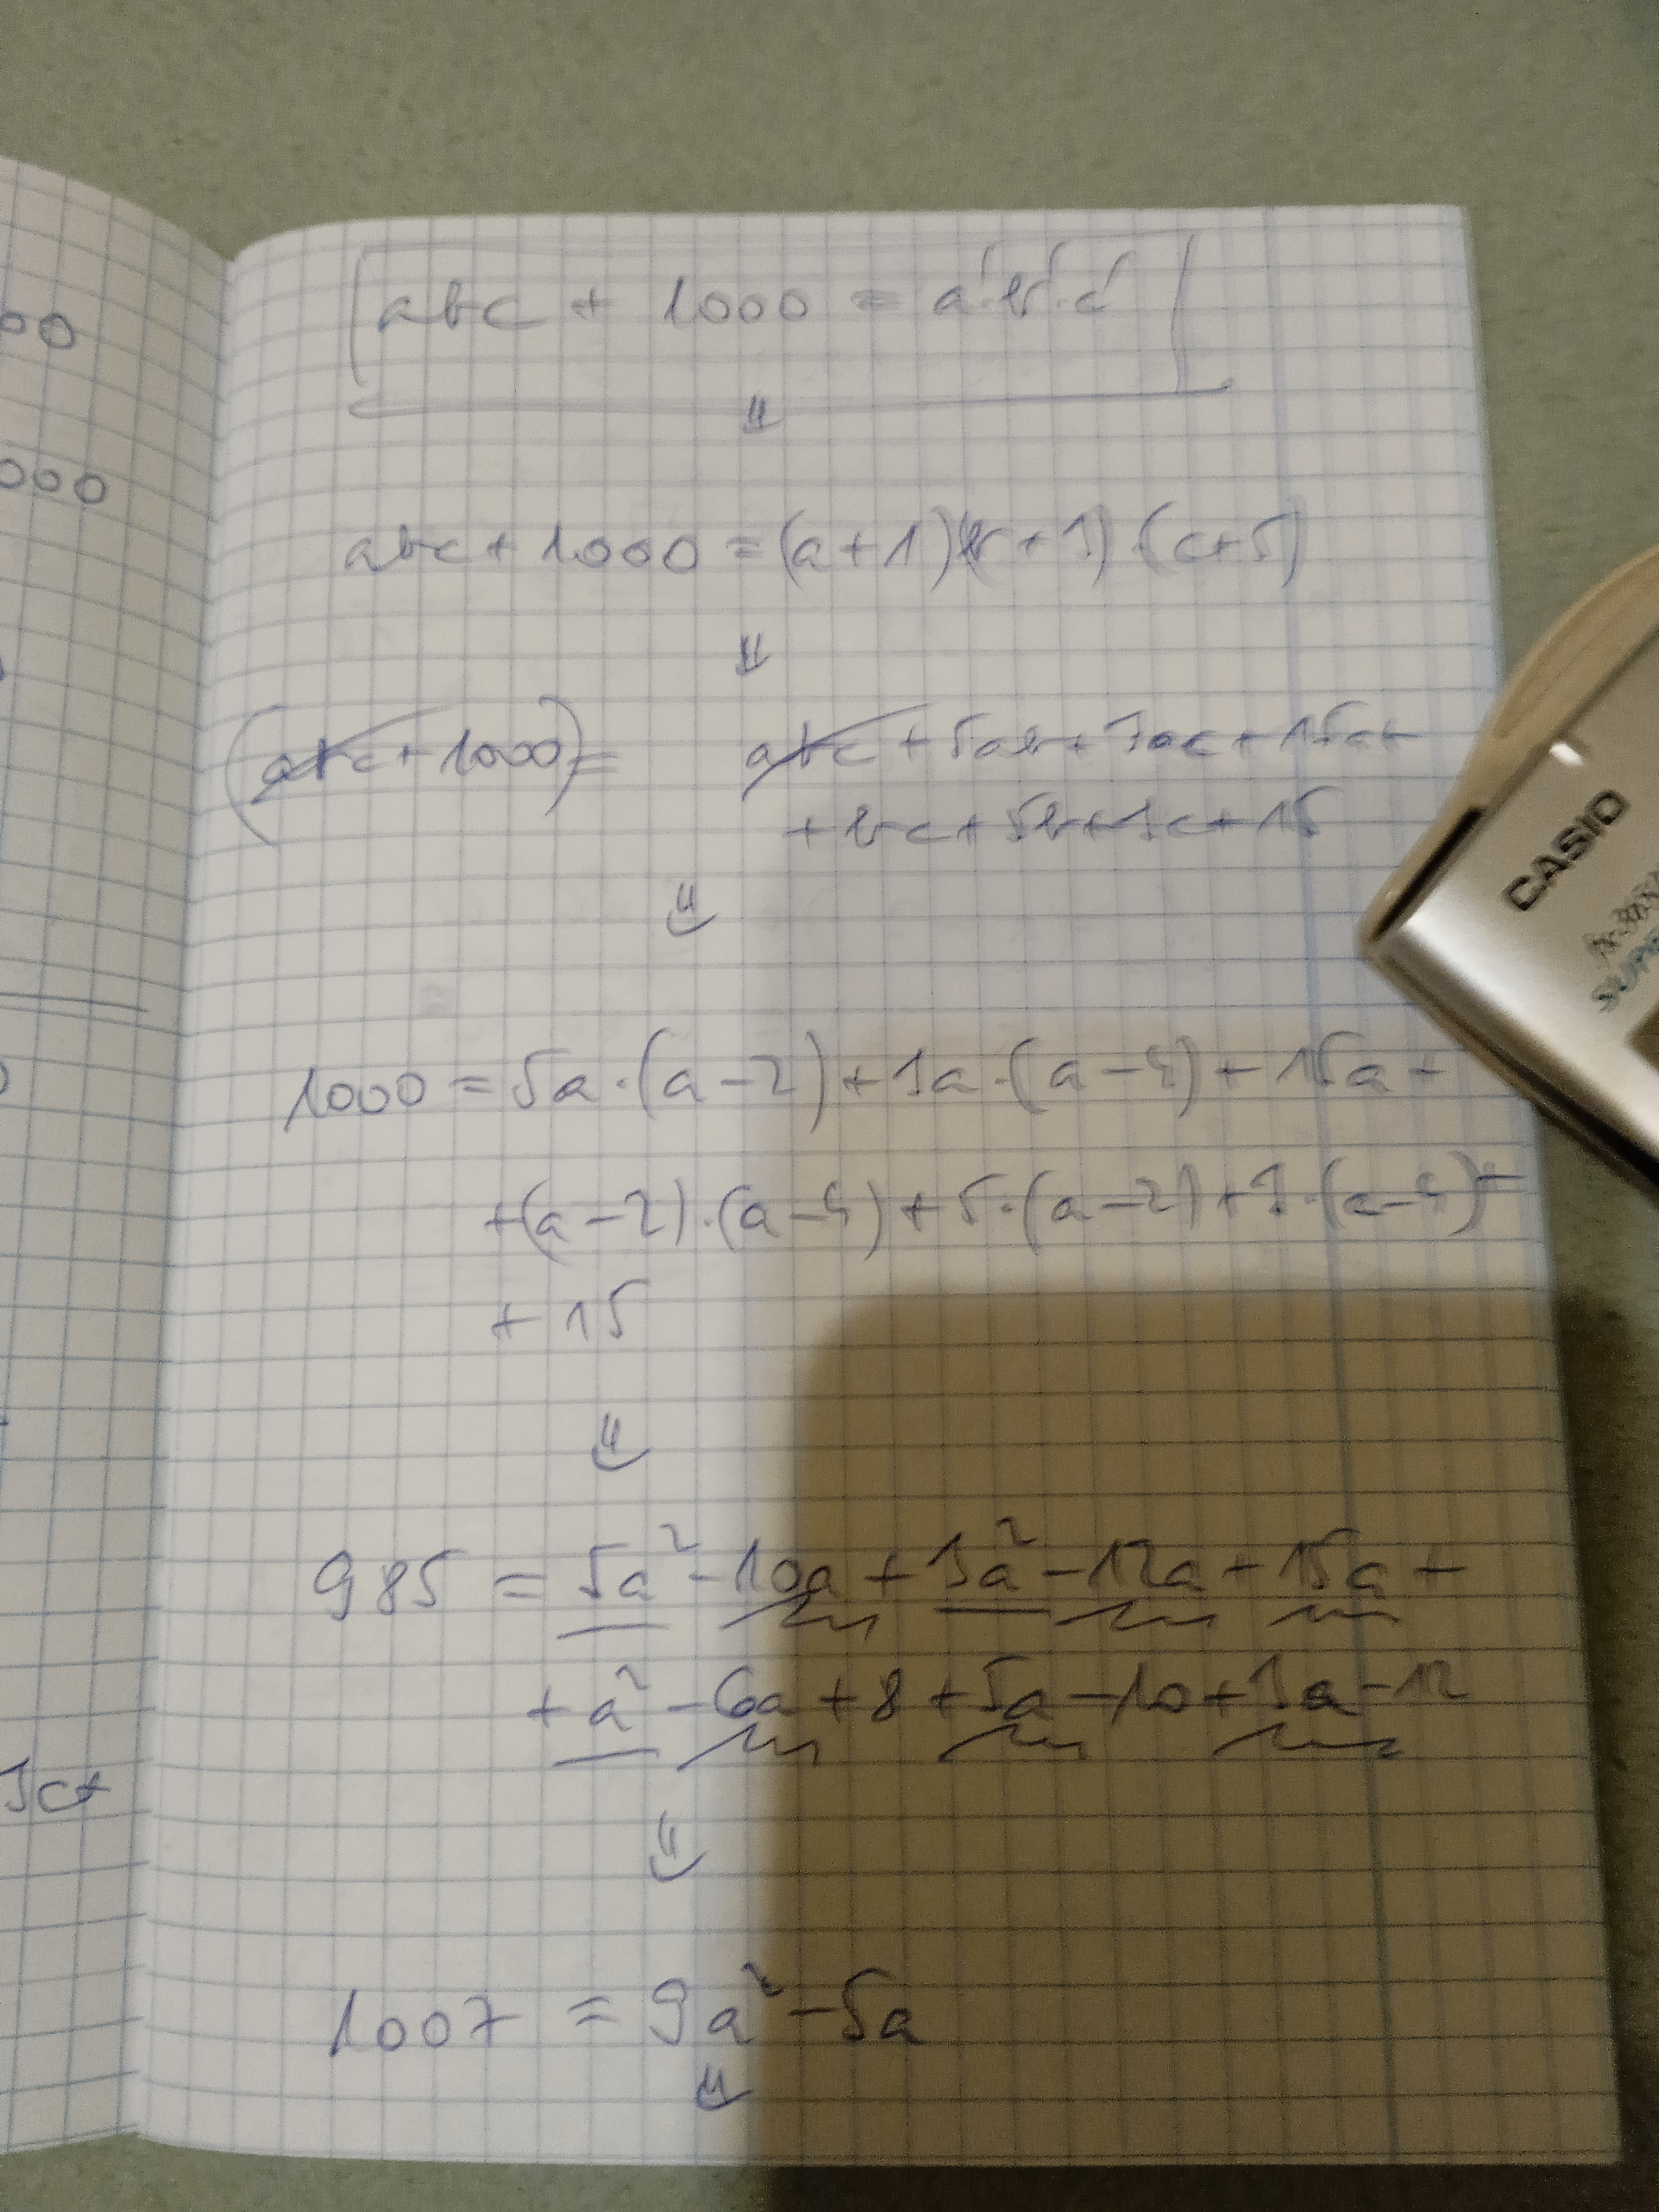 00
000
3c+
abc + 1000 = a'·b'·c'
⇓
abc + 1000 = (a+1)(b+3)·(c+5)
⇓
(abc + 1000) = abc + 5ab + 3ac + 15a +
+ bc + 5b + 3c + 15
⇓
1000 = 5a·(a-2) + 3a·(a-4) + 15a +
+(a-2)·(a-4) + 5·(a-2) + 3·(a-4) +
+ 15
⇓
985 = 5a² - 10a + 3a² - 12a + 15a +
+ a² - 6a + 8 + 5a - 10 + 3a - 12
⇓
1007 = 9a² - 5a
⇓
CASIO